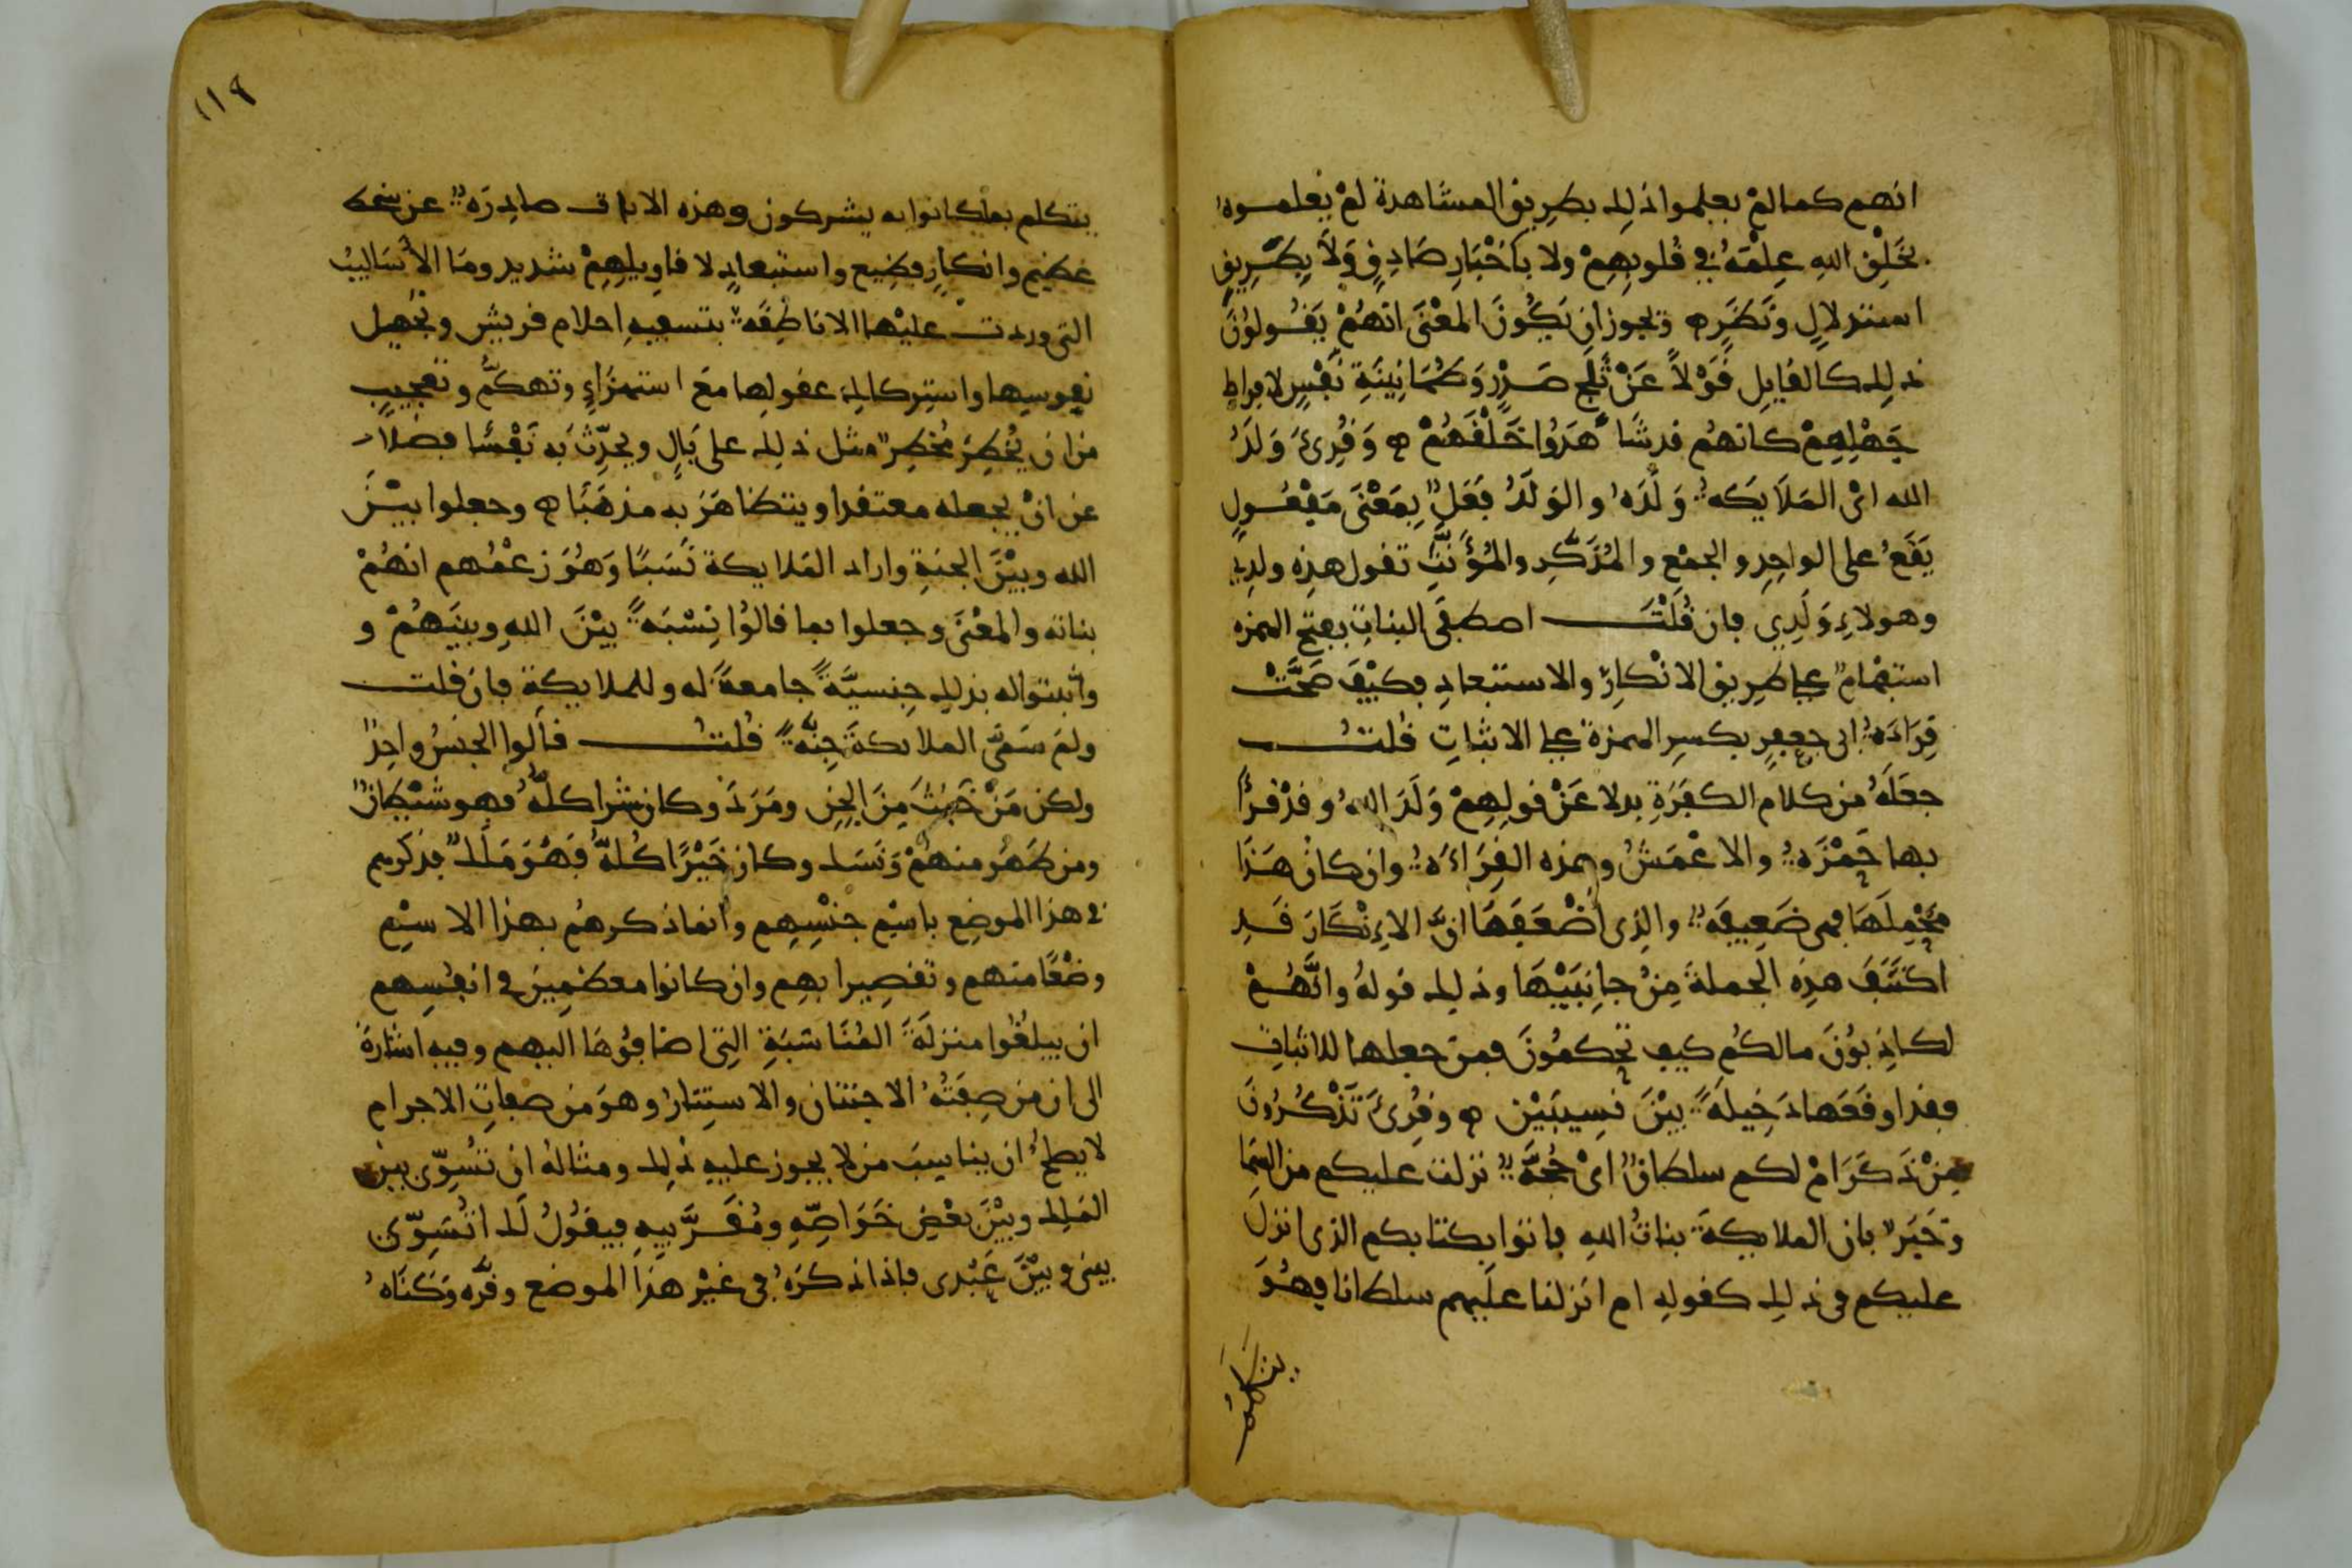 انهم كما لم يعلموا ذلك بطريق المشاهدة لم يعلموه
بخلق الله علمه في قلوبهم ولا بأخبار صادق ولا بطريق
استدلال ونظر ويجوز ان يكون المعنى انهم يقولون
ذلك كالقايل قولا عن ثلج صدر وطمانينة نفس لافراط
جهلهم كانهم قد شاهدوا خلقهم وقرئ ولد
الله اى الملايكة ولده والولد فعل بمعنى مفعول
يقع على الواحد والجمع والمذكر والمؤنث تقول هذه ولدي
وهولاء ولدي فان قلت اصطفى البنات بفتح الهمزه
استفهام على طريق الانكار والاستبعاد فكيف صحت
قراءة ابى جعفر بكسر الهمزة على الاثبات قلت
جعله من كلام الكفرة بدلا عن قولهم ولد الله وقد قرأ
بها حمزة والاعمش وهذه القراءة وان كان هذا
محملها فهى ضعيفة والذى أضعفها ان الانكار قد
اكتنف هذه الجملة من جانبيها وذلك قوله وانهم
لكاذبون مالكم كيف تحكمون فمن جعلها للاثبات
فقد اوقعها دخيلة بين نسيبين وقرئ تذكرون
من ذكر ام لكم سلطان اى حجة نزلت عليكم من السما
وخبر بان الملايكة بنات الله فاتوا بكتابكم الذى انزل
عليكم فى ذلك كقوله ام انزلنا عليهم سلطانا فهو
يتكلم
١١٩
يتكلم بما كانوا به يشركون وهذه الايات صادرة عن سخط
عظيم وانكار فظيع واستبعاد لاقاويلهم شديد وما الأساليب
التى وردت عليها الا ناطقة بتسفيه احلام قريش وتجهيل
نفوسها واستركاك عقولها مع استهزاء وتهكم وتعجيب
من ان يخطر مخطر مثل ذلك على بال ويحدث به نفسا فضلا
عن ان يجعله معتقدا ويتظاهر به مذهبا وجعلوا بين
الله وبين الجنة واراد الملايكة نسبا وهو زعمهم انهم
بناته والمعنى وجعلوا بما قالوا نسبة بين الله وبينهم و
واثبتوا له بذلك جنسية جامعة له وللملايكة فان قلت
ولم سمى الملايكة جنة قلت قالوا الجنس واحد
ولكن من خبث من الجن ومرد وكان شرا كله فهو شيطان
ومن طهر منهم ونسك وكان خيرا كله فهو ملك فذكرهم
في هذا الموضع باسم جنسهم وانما ذكرهم بهذا الاسم
وضعا منهم وتقصيرا بهم وان كانوا معظمين في انفسهم
ان يبلغوا منزلة المناسبة التى اضافوها اليهم وفيه اشارة
الى ان من صفته الاجتنان والاستتار وهو من صفات الاجرام
لا يصلح ان يناسب من لا يجوز عليه ذلك ومثاله ان تسوى بين
الملك وبين بعض خواصه ومقربيه فيقول لك اتسوى
بينى وبين عبدى فاذا ذكره فى غير هذا الموضع وقره وكناه